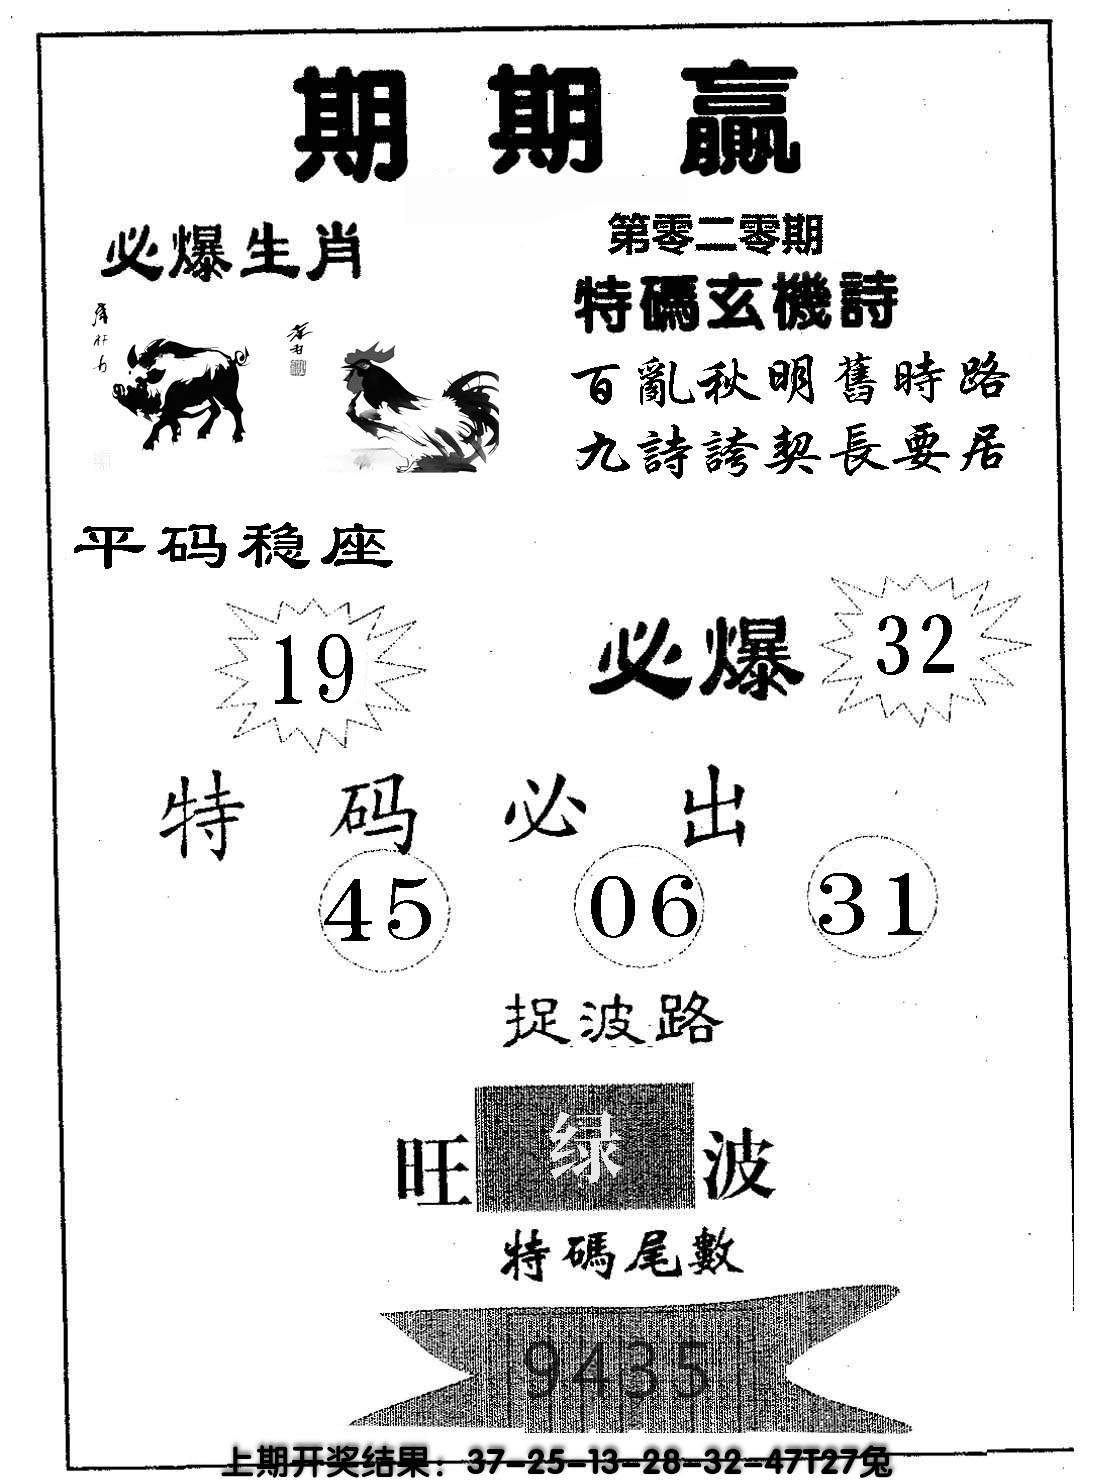 期期赢
必爆生肖
第零二零期
特碼玄機詩
百亂秋明舊時路
九詩誇契長要居
平码稳座
19
必爆 32
特码必出
45 06 31
捉波路
旺 绿 波
特碼尾數
9435
上期开奖结果：37-25-13-28-32-47T27兔